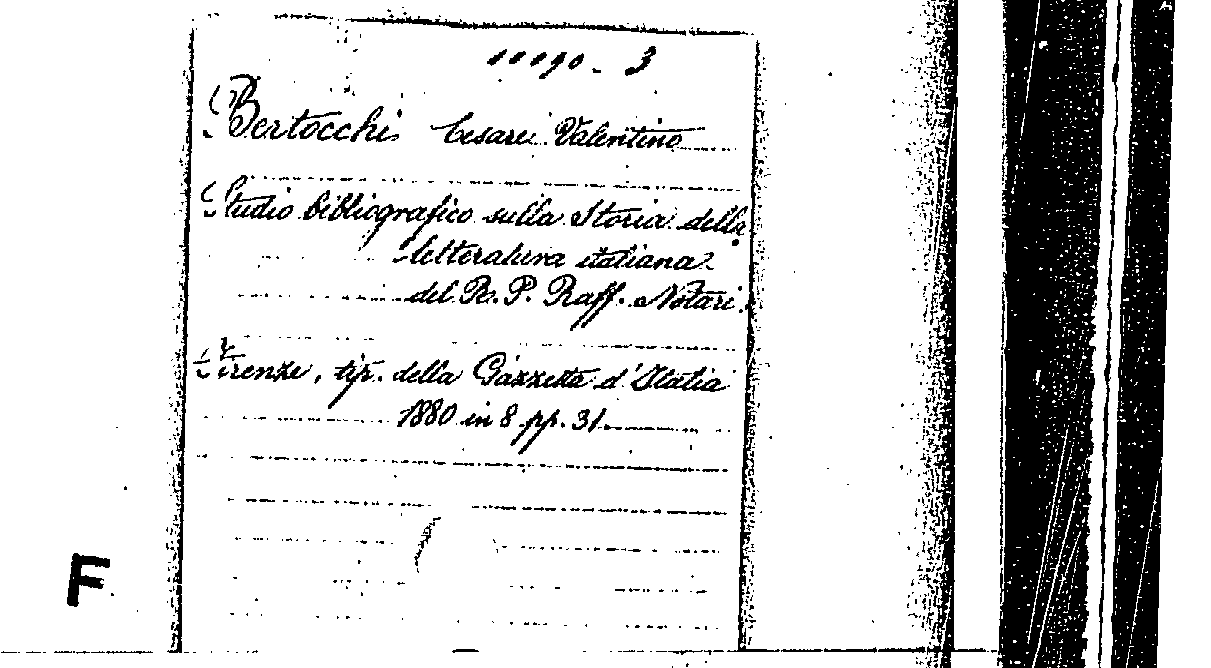 Bertocchi Cesare Valentino
Studio bibliografico sulla Storia della
letteratura italiana
del R. P. Raff. Notari.
Firenze, tip. della Gazzetta d'Italia
1880 in 8 pp. 31.
F